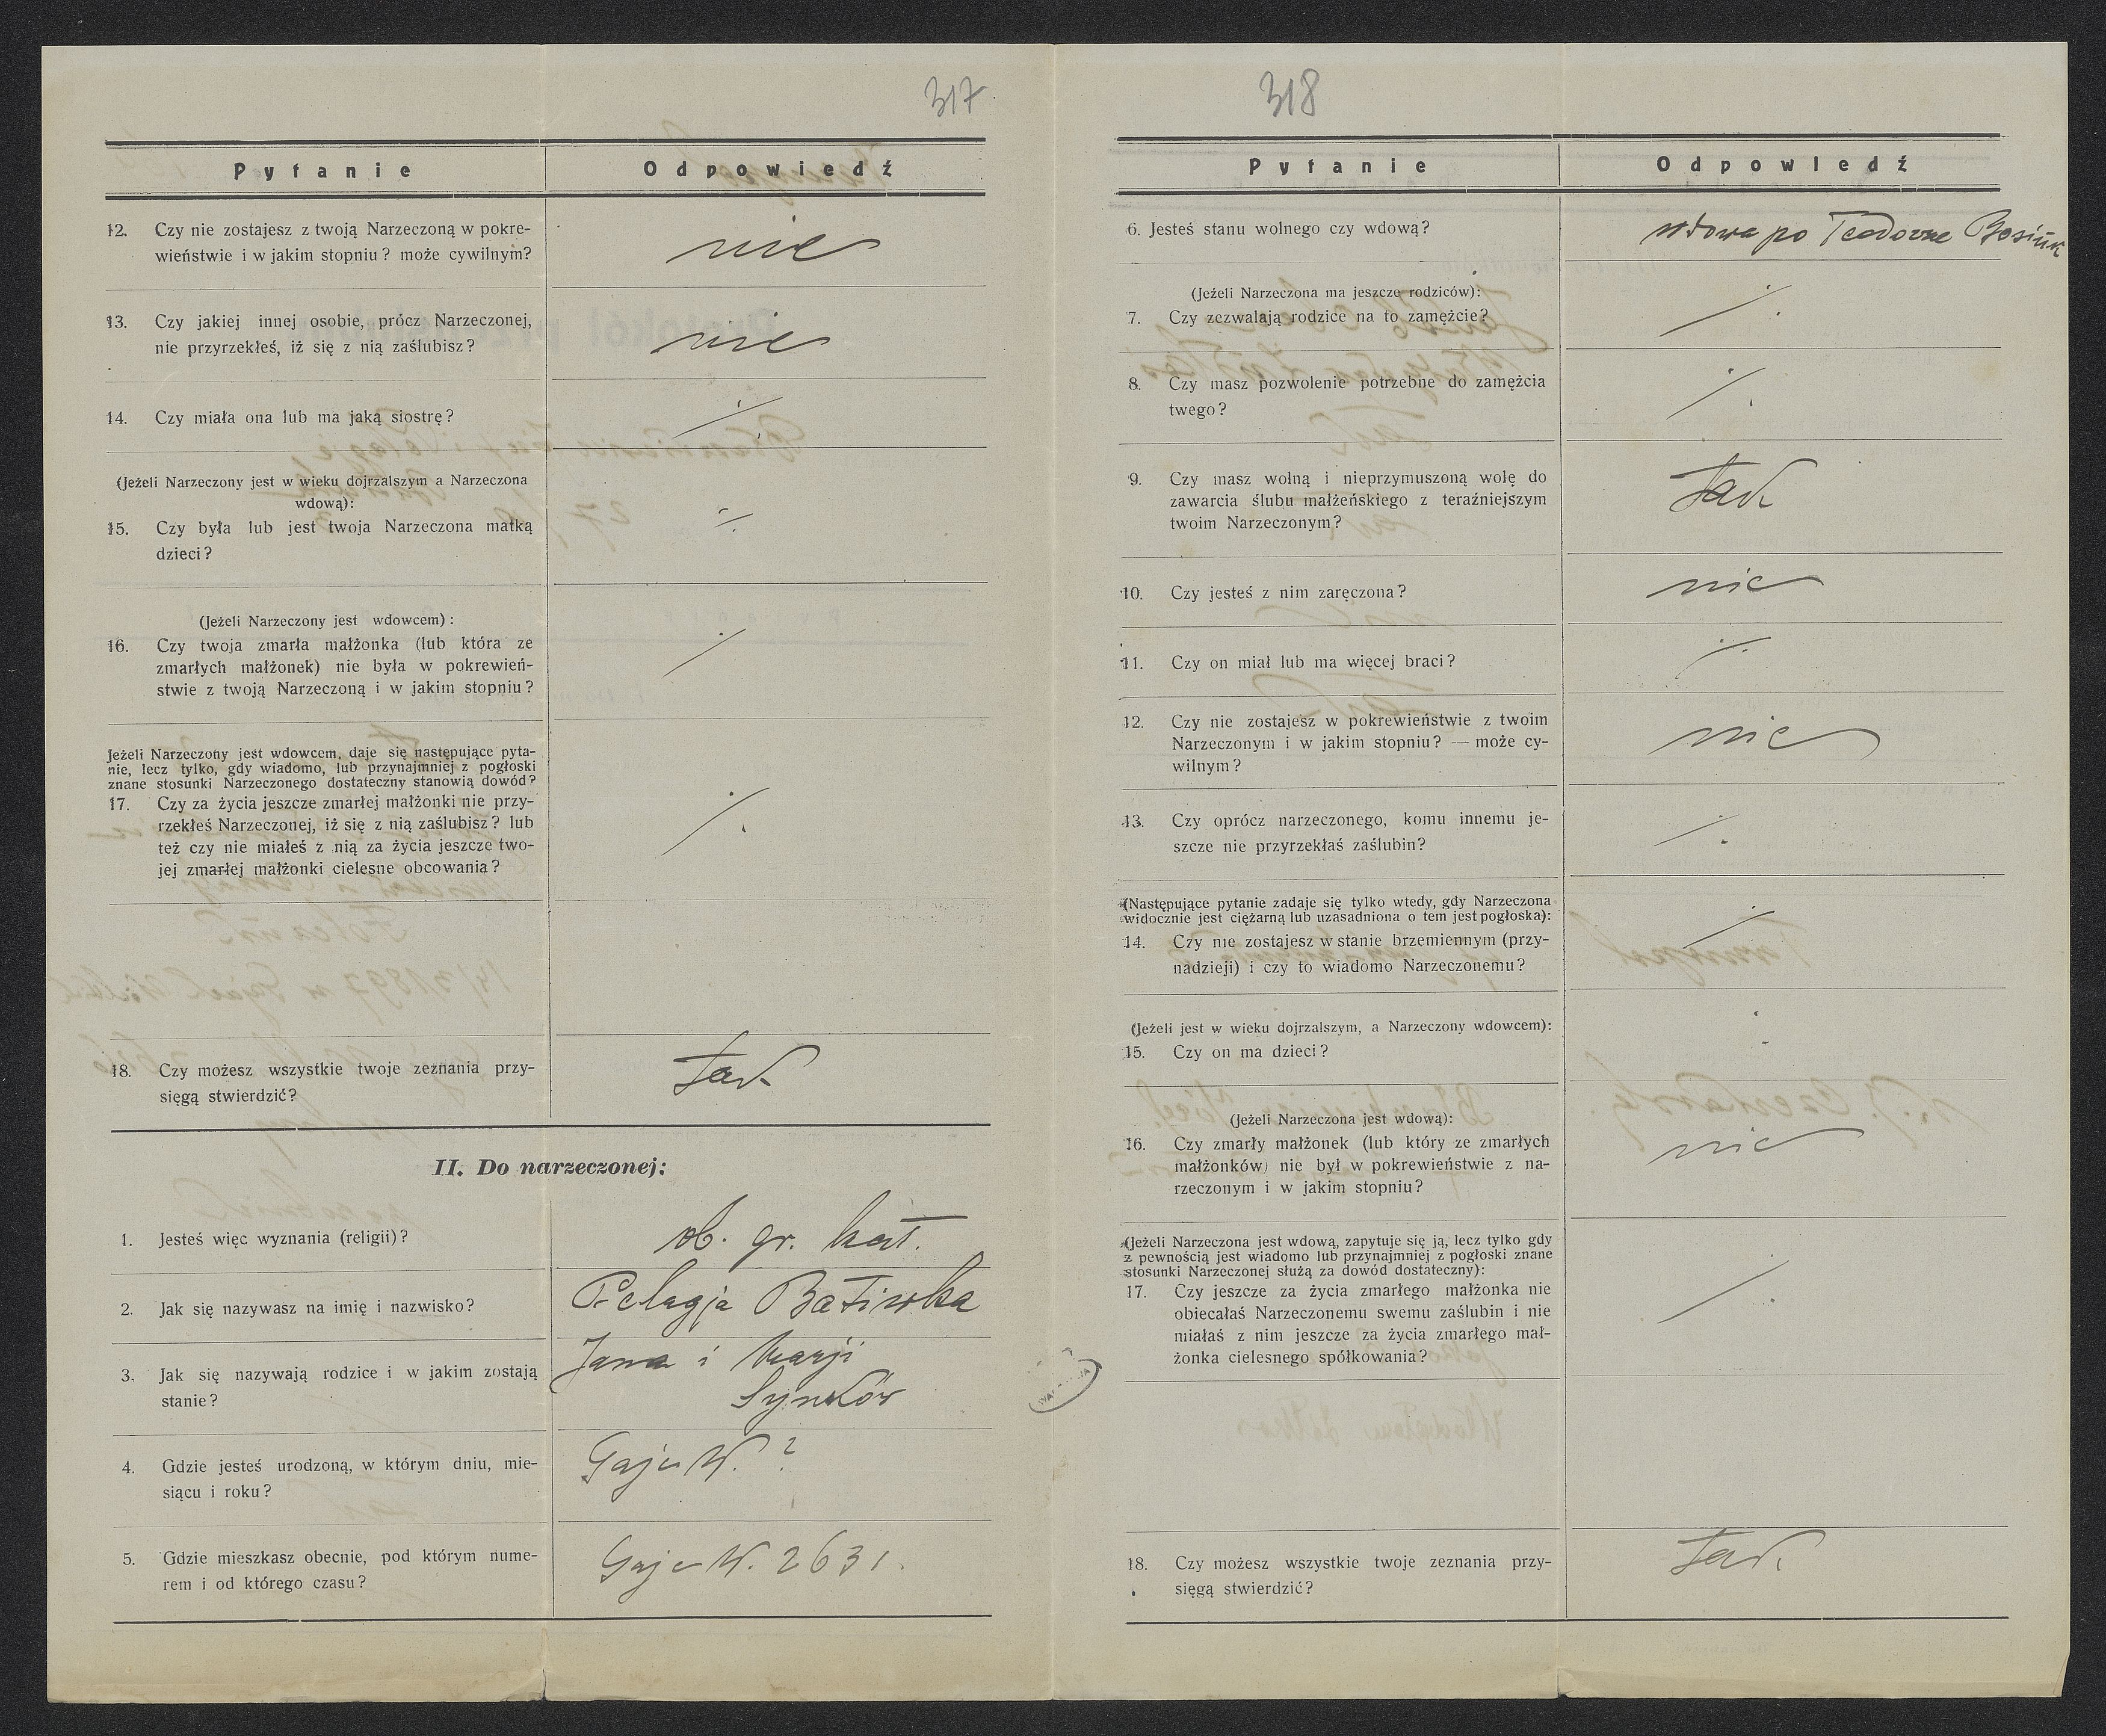 317
Pytanie Odpowiedź
12. Czy nie zostajesz z twoją Narzeczoną w pokre-
wieństwie i w jakim stopniu? może cywilnym?
nie
13. Czy jakiej innej osobie, prócz Narzeczonej,
nie przyrzekłeś, iż się z nią zaślubisz?
nie
14. Czy miała ona lub ma jaką siostrę?
(Jeżeli Narzeczony jest w wieku dojrzalszym a Narzeczona
wdową):
15. Czy była lub jest twoja Narzeczona matką
dzieci?
(Jeżeli Narzeczony jest wdowcem):
16. Czy twoja zmarła małżonka (lub która ze
zmarłych małżonek) nie była w pokrewień-
stwie z twoją Narzeczoną i w jakim stopniu?
Jeżeli Narzeczony jest wdowcem, daje się następujące pyta-
nie, lecz tylko, gdy wiadomo, lub przynajmniej z pogłoski
znane stosunki Narzeczonego dostateczny stanowią dowód?
17. Czy za życia jeszcze zmarłej małżonki nie przy-
rzekłeś Narzeczonej, iż się z nią zaślubisz? lub
też czy nie miałeś z nią za życia jeszcze two-
jej zmarłej małżonki cielesne obcowania?
18. Czy możesz wszystkie twoje zeznania przy-
sięgą stwierdzić?
Tak
II. Do narzeczonej:
1. Jesteś więc wyznania (religii)?
ob. gr. kat.
2. Jak się nazywasz na imię i nazwisko?
Pelagja
3. Jak się nazywają rodzice i w jakim zostają
stanie?
Jana i Marji
Synków
4. Gdzie jesteś urodzoną, w którym dniu, mie-
siącu i roku?
Gaje W. ?
5. Gdzie mieszkasz obecnie, pod którym nume-
rem i od którego czasu?
Gaje W. 2631.
318
Pytanie Odpowiedź
6. Jesteś stanu wolnego czy wdową?
wdowa po Teodorze
(Jeżeli Narzeczona ma jeszcze rodziców):
7. Czy zezwalają rodzice na to zamęźcie?
8. Czy masz pozwolenie potrzebne do zamęźcia
twego?
9. Czy masz wolną i nieprzymuszoną wolę do
zawarcia ślubu małżeńskiego z teraźniejszym
twoim Narzeczonym?
Tak
10. Czy jesteś z nim zaręczona?
nie
11. Czy on miał lub ma więcej braci?
12. Czy nie zostajesz w pokrewieństwie z twoim
Narzeczonym i w jakim stopniu? — może cy-
wilnym?
nie
13. Czy oprócz narzeczonego, komu innemu je-
szcze nie przyrzekłaś zaślubin?
(Następujące pytanie zadaje się tylko wtedy, gdy Narzeczona
widocznie jest ciężarną lub uzasadniona o tem jest pogłoska):
14. Czy nie zostajesz w stanie brzemiennym (przy-
nadzieji) i czy to wiadomo Narzeczonemu?
(Jeżeli jest w wieku dojrzalszym, a Narzeczony wdowcem):
15. Czy on ma dzieci?
(Jeżeli Narzeczona jest wdową):
16. Czy zmarły małżonek (lub który ze zmarłych
małżonków) nie był w pokrewieństwie z na-
rzeczonym i w jakim stopniu?
nie
(Jeżeli Narzeczona jest wdową, zapytuje się ją, lecz tylko gdy
z pewnością jest wiadomo lub przynajmniej z pogłoski znane
stosunki Narzeczonej służą za dowód dostateczny):
17. Czy jeszcze za życia zmarłego małżonka nie
obiecałaś Narzeczonemu swemu zaślubin i nie
miałaś z nim jeszcze za życia zmarłego mał-
żonka cielesnego spółkowania?
18. Czy możesz wszystkie twoje zeznania przy-
sięgą stwierdzić?
Tak.